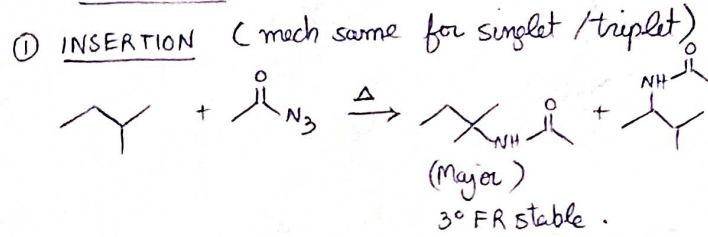 ① INSERTION (mech same for singlet / triplet)
+ O N₃ Δ NH O + NH O
(Major)
3° FR stable.